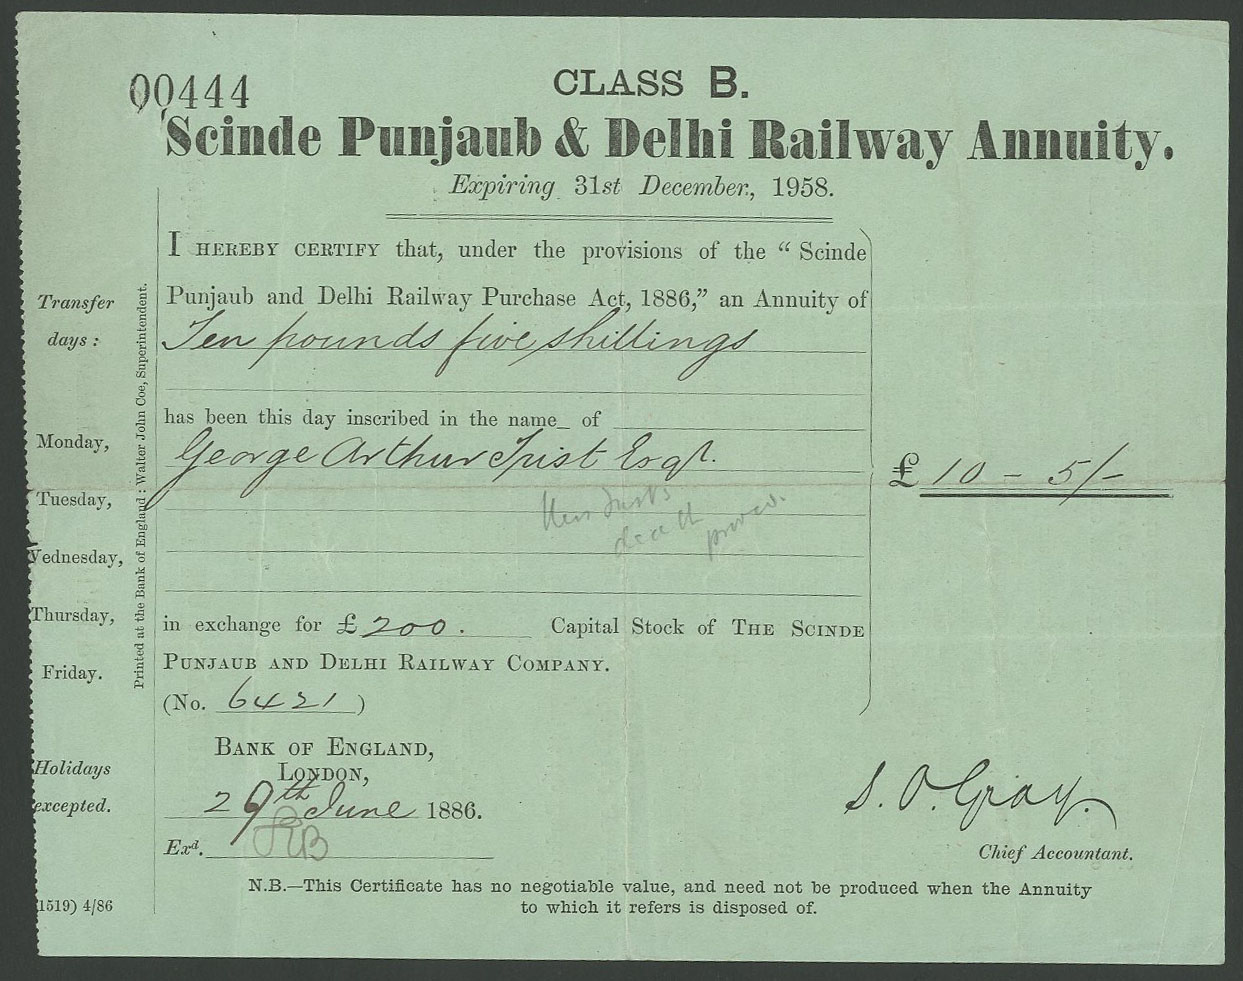 00444
CLASS B.
Scinde Punjaub & Delhi Railway Annuity.
Expiring 31st December, 1958.
I HEREBY CERTIFY that, under the provisions of the “ Scinde
Punjaub and Delhi Railway Purchase Act, 1886,” an Annuity of
Ten pounds five shillings
has been this day inscribed in the name_ of
George Arthur Trist Esqr.
£ 10 - 5/-
death
in exchange for £ 200. Capital Stock of THE SCINDE
PUNJAUB AND DELHI RAILWAY COMPANY.
(No. 6421)
BANK OF ENGLAND,
LONDON,
29th June 1886.
Exd.
S. O. Gray.
Chief Accountant.
N.B.—This Certificate has no negotiable value, and need not be produced when the Annuity
to which it refers is disposed of.
Transfer
days :
Monday,
Tuesday,
Wednesday,
Thursday,
Friday.
Holidays
excepted.
1519) 4/86
Printed at the Bank of England : Walter John Coe, Superintendent.